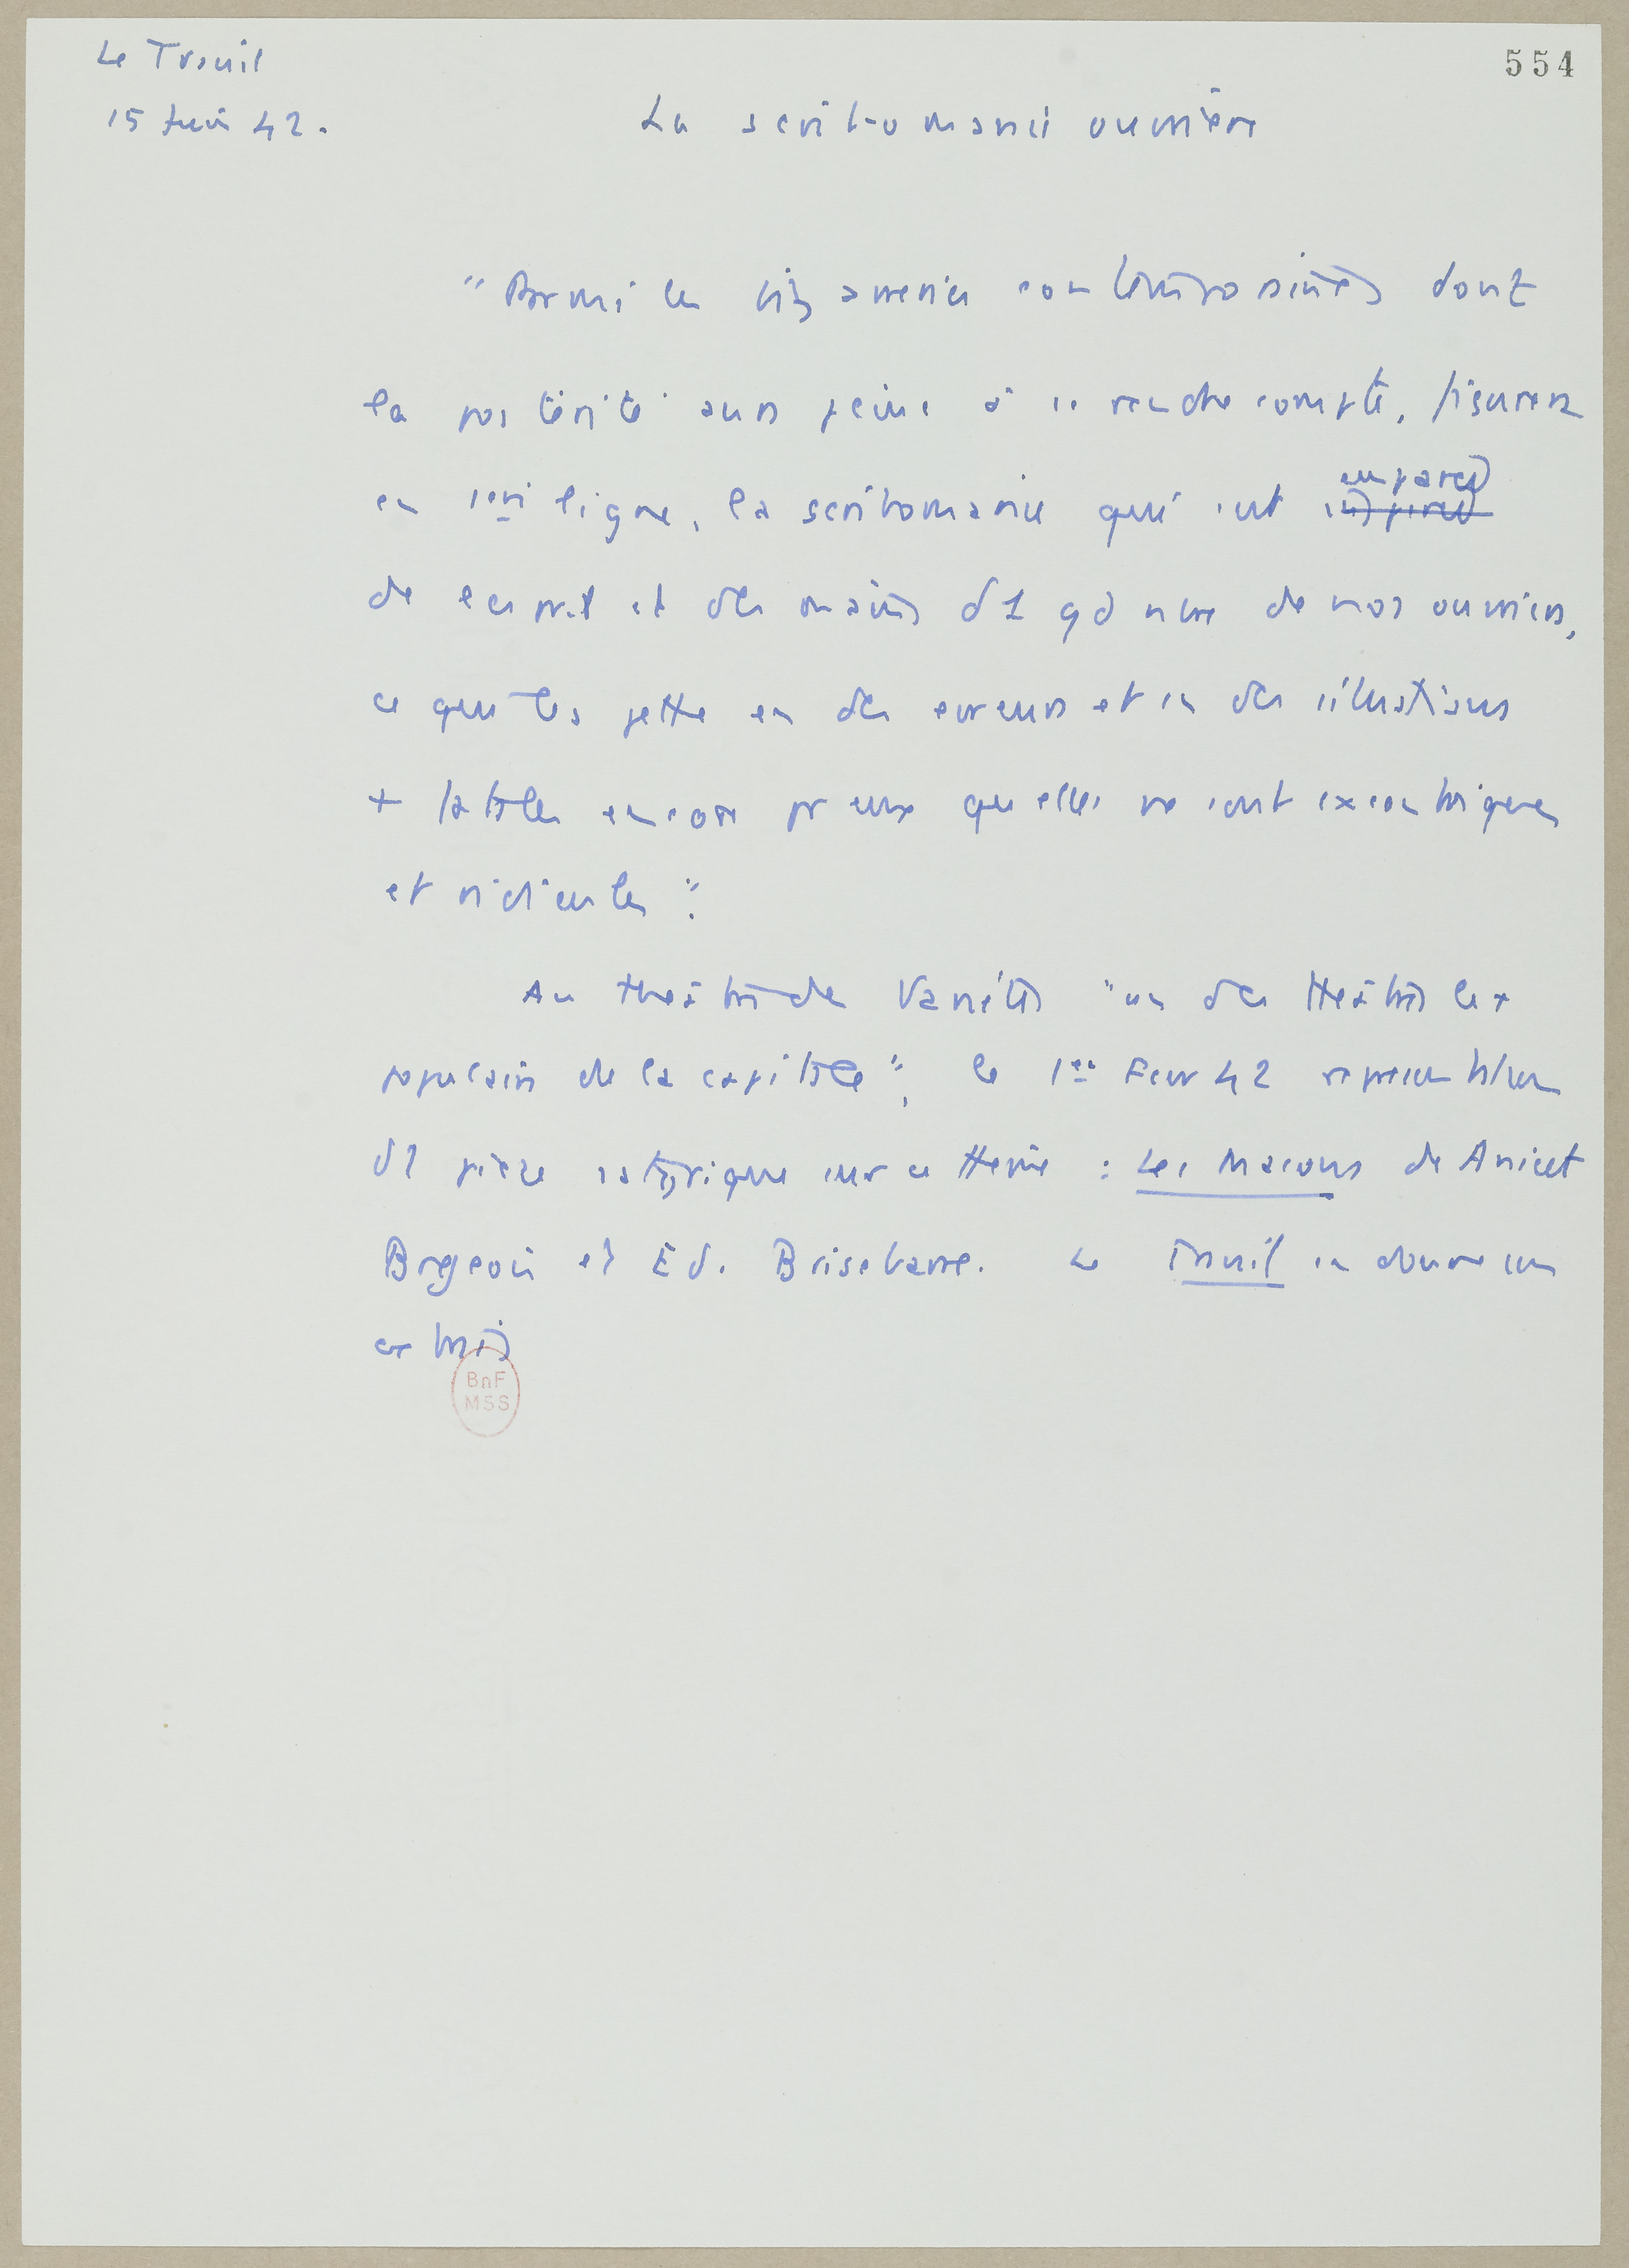 Le Travail
554
15 Juin 42.
La scribomanie ouvrière
"Parmi les bizarreries contemporaines dont
la postérité aura peine à se rendre compte, figurera
en 1ère ligne, la scribomanie qui s'est emparée
inspirée
de esprit et des mains d'1 gd nbre de nos ouvriers,
ce qui les jette en des erreurs et en des illusions
+ fatales encore pr eux qu'elles ne sont excentriques
et ridicules".
Au théâtre des Variétés "un des théâtres les +
populaires de la capitale", le 1er Fevr 42 représentation
d'1 pièce satyrique sur ce thème : Les Macons de Anicet
Brgeois et Ed. Brisebarre. Le Travail en donne un
extrait
BnF
MSS